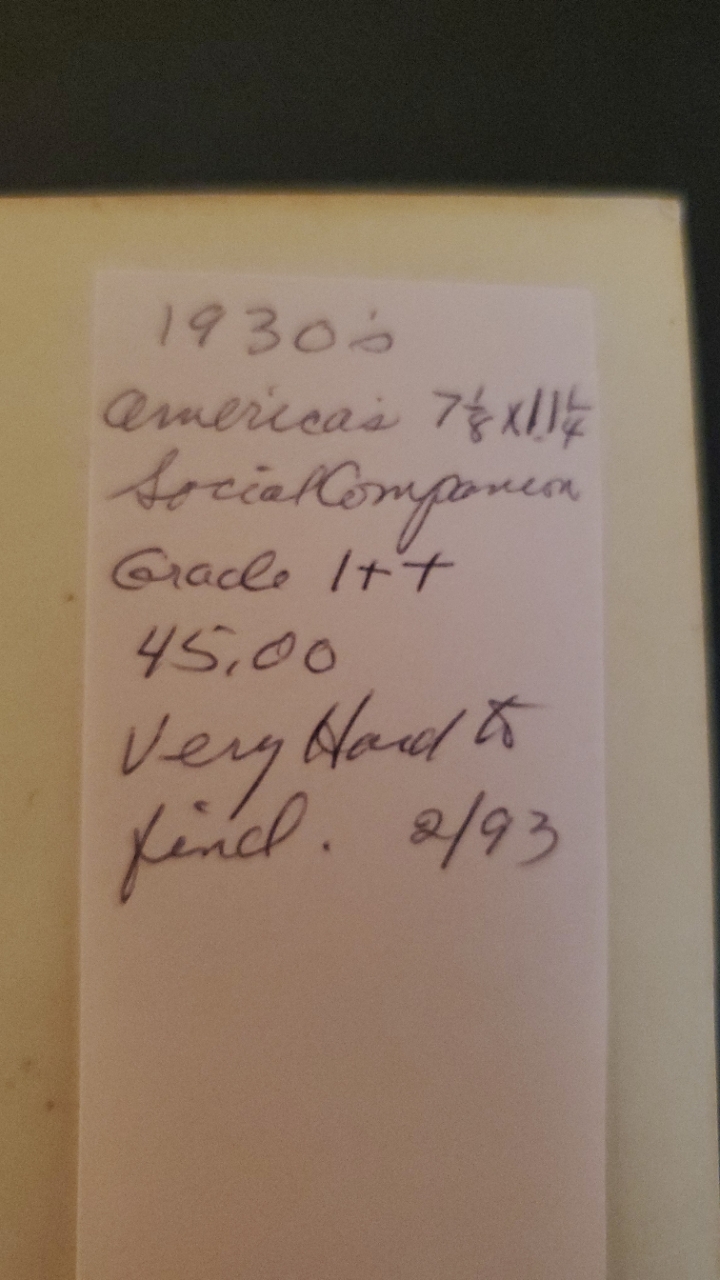 1930's
America's 7 1/8 x 11 1/4
Social Companion
Grade 1++
45.00
Very Hard to
find. 2/93